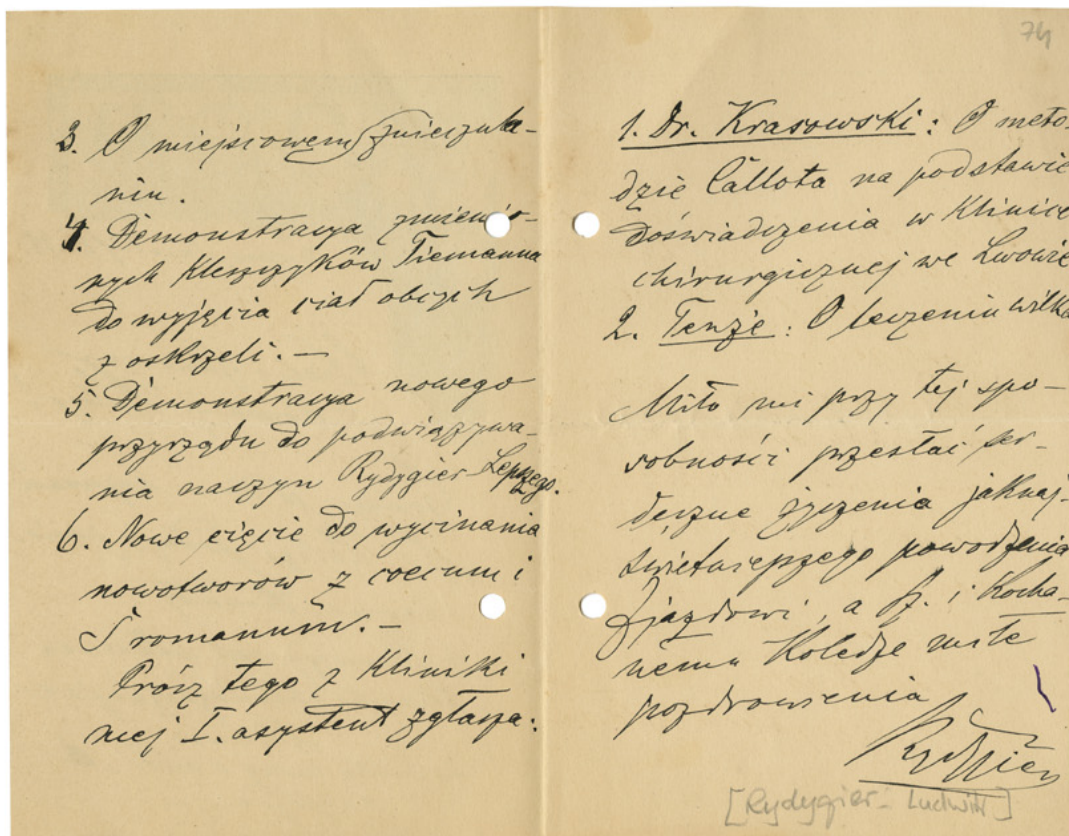 3. O miejscowem znieczule-
niu.
4. Demonstracya zmienio-
nych Kleszczyków Tiemanna
do wyjęcia ciał obcych
z oskrzeli. —
5. Demonstracya nowego
przyrządu do podwiązywa-
nia naczyn Rydygier-Lepszego.
6. Nowe cięcie do wycinania
nowotworów z coecum i
S romanum. —
Prócz tego z Kliniki
mej I. asystent zgłasza:
74
1. Dr. Krasowski: O meto-
dzie Callota na podstawie
doświadczenia w Klinice
chirurgicznej we Lwowie
2. Tenże: O leczeniu wilka
Miło mi przy tej spo-
sobności przesłać ser-
deczne życzenia jaknaj-
świetniejszego powodzenia
Zjazdowi, a Sz. i Kocha-
nemu Koledze miłe
pozdrowienia
Rydygier
[Rydygier - Ludwik]